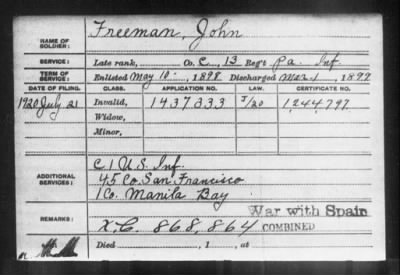 Freeman, John
NAME OF SOLDIER:
SERVICE: Late rank, Co. C, 13 Reg't Pa. Inf.
TERM OF SERVICE: Enlisted May 10, 1898 Discharged Mar 1, 1899
DATE OF FILING. CLASS. APPLICATION NO. LAW. CERTIFICATE NO.
1920 July 21 Invalid, 1437333 J/20 1,244,797
Widow,
Minor,
C 1 U.S. Inf.
ADDITIONAL SERVICES: 45 Co. San Francisco
1 Co. Manila Bay
War with Spain
REMARKS: X.C. 868,864 COMBINED
Died , 1 , at